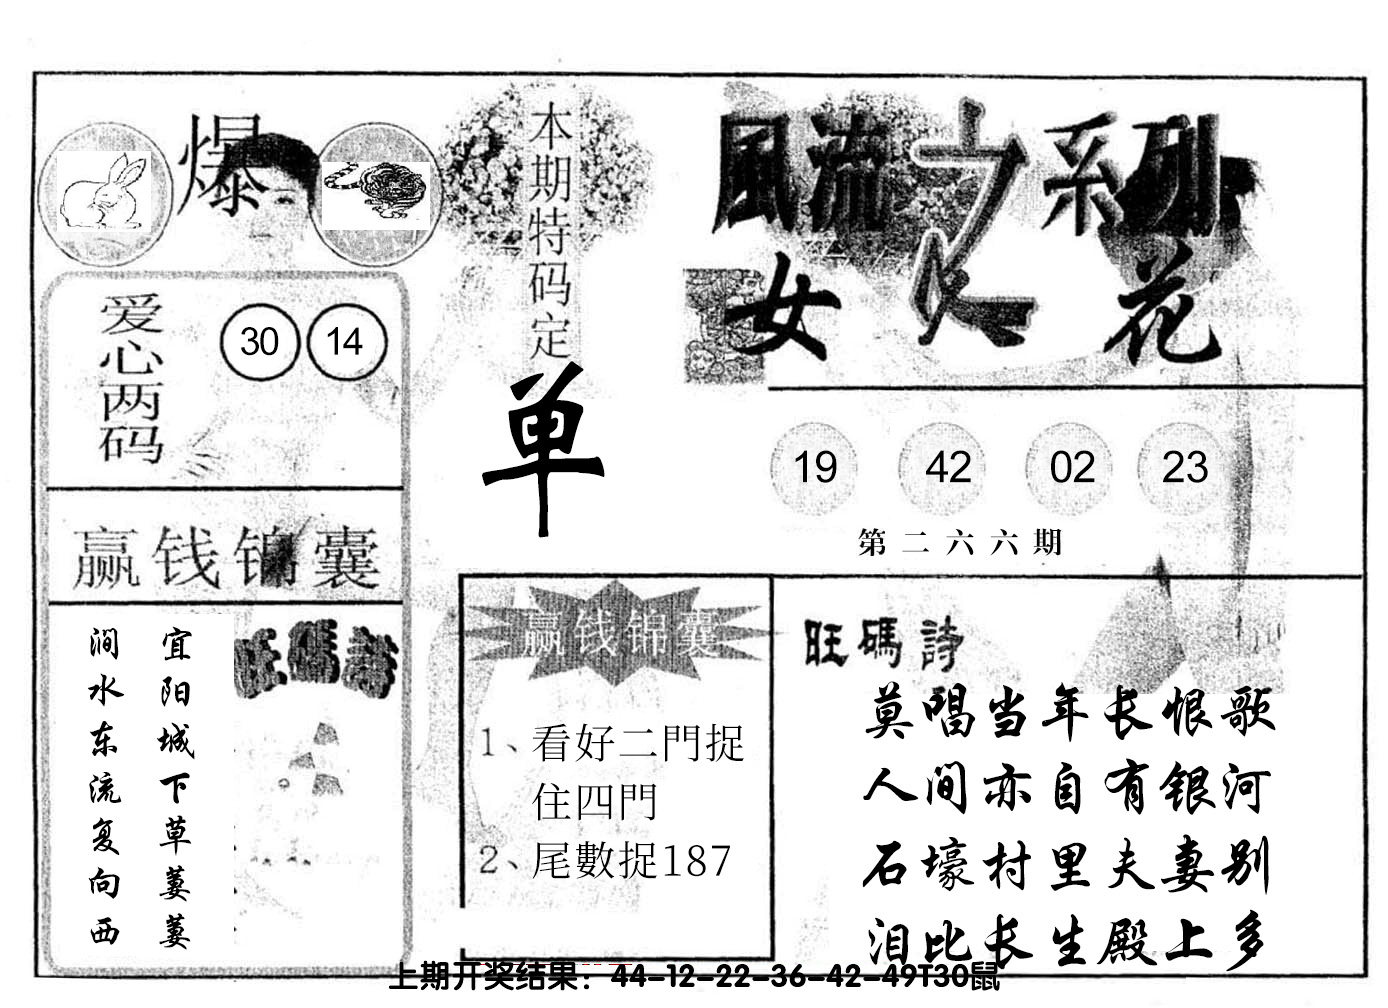 爆
本期特码定
单
風流之系列
女人花
爱心两码
30 14
19 42 02 23
第二六六期
赢钱锦囊
宜阳城下草萋萋
涧水东流复向西
旺碼詩
赢钱锦囊
1、看好二門捉
住四門
2、尾數捉187
旺碼詩
莫唱当年长恨歌
人间亦自有银河
石壕村里夫妻别
泪比长生殿上多
上期开奖结果：44-12-22-36-42-49T30鼠